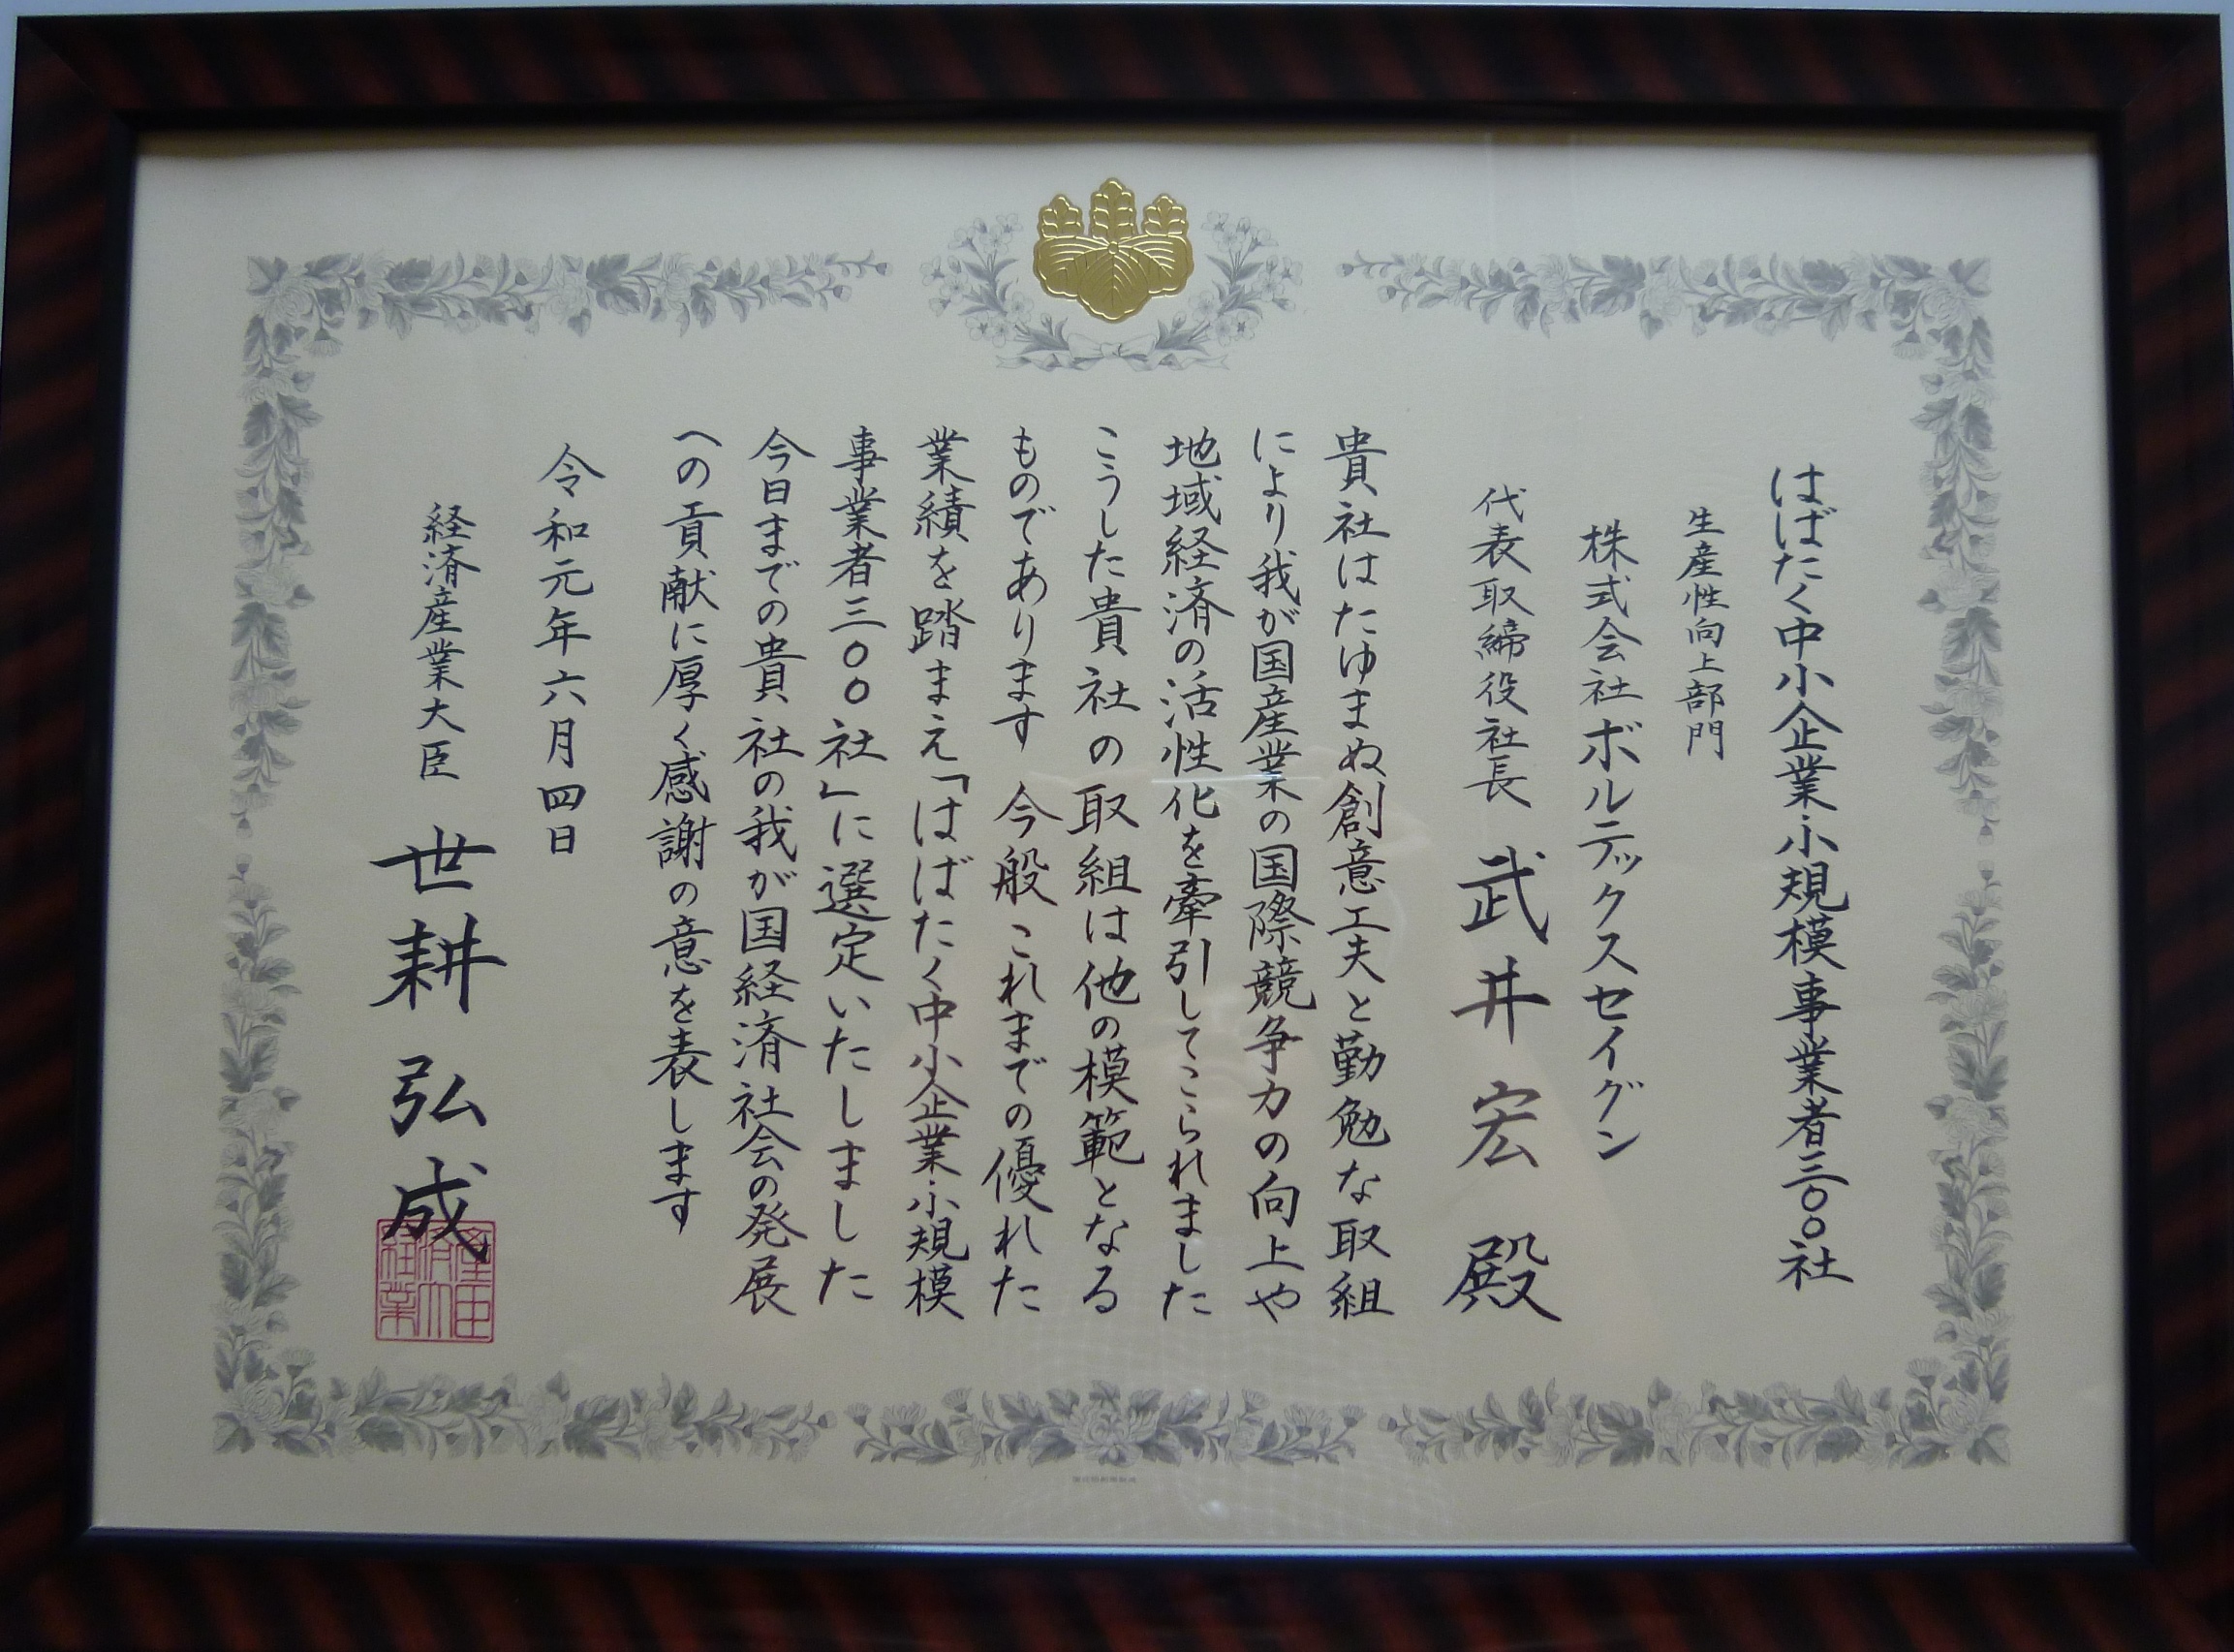 はばたく中小企業・小規模事業者三〇〇社
生産性向上部門
株式会社ボルテックスセイグン
代表取締役社長 武井宏 殿
貴社はたゆまぬ創意工夫と勤勉な取組
により我が国産業の国際競争力の向上や
地域経済の活性化を牽引してこられました
こうした貴社の取組は他の模範となる
ものであります 今般これまでの優れた
業績を踏まえ「はばたく中小企業・小規模
事業者三〇〇社」に選定いたしました
今日までの貴社の我が国経済社会の発展
への貢献に厚く感謝の意を表します
令和元年六月四日
経済産業大臣 世耕弘成